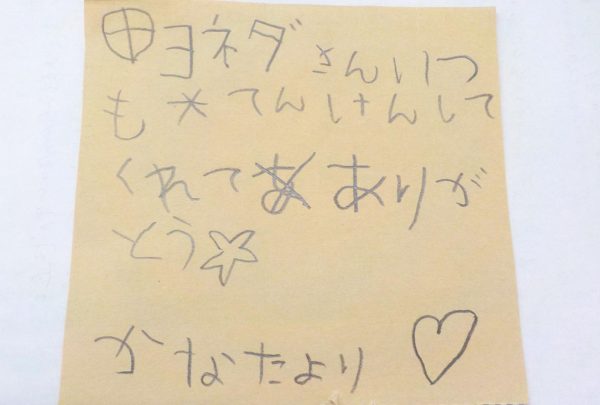 田ヨネダさんいつ
も大てんけんして
くれてありが
とう☆
かなたより♡